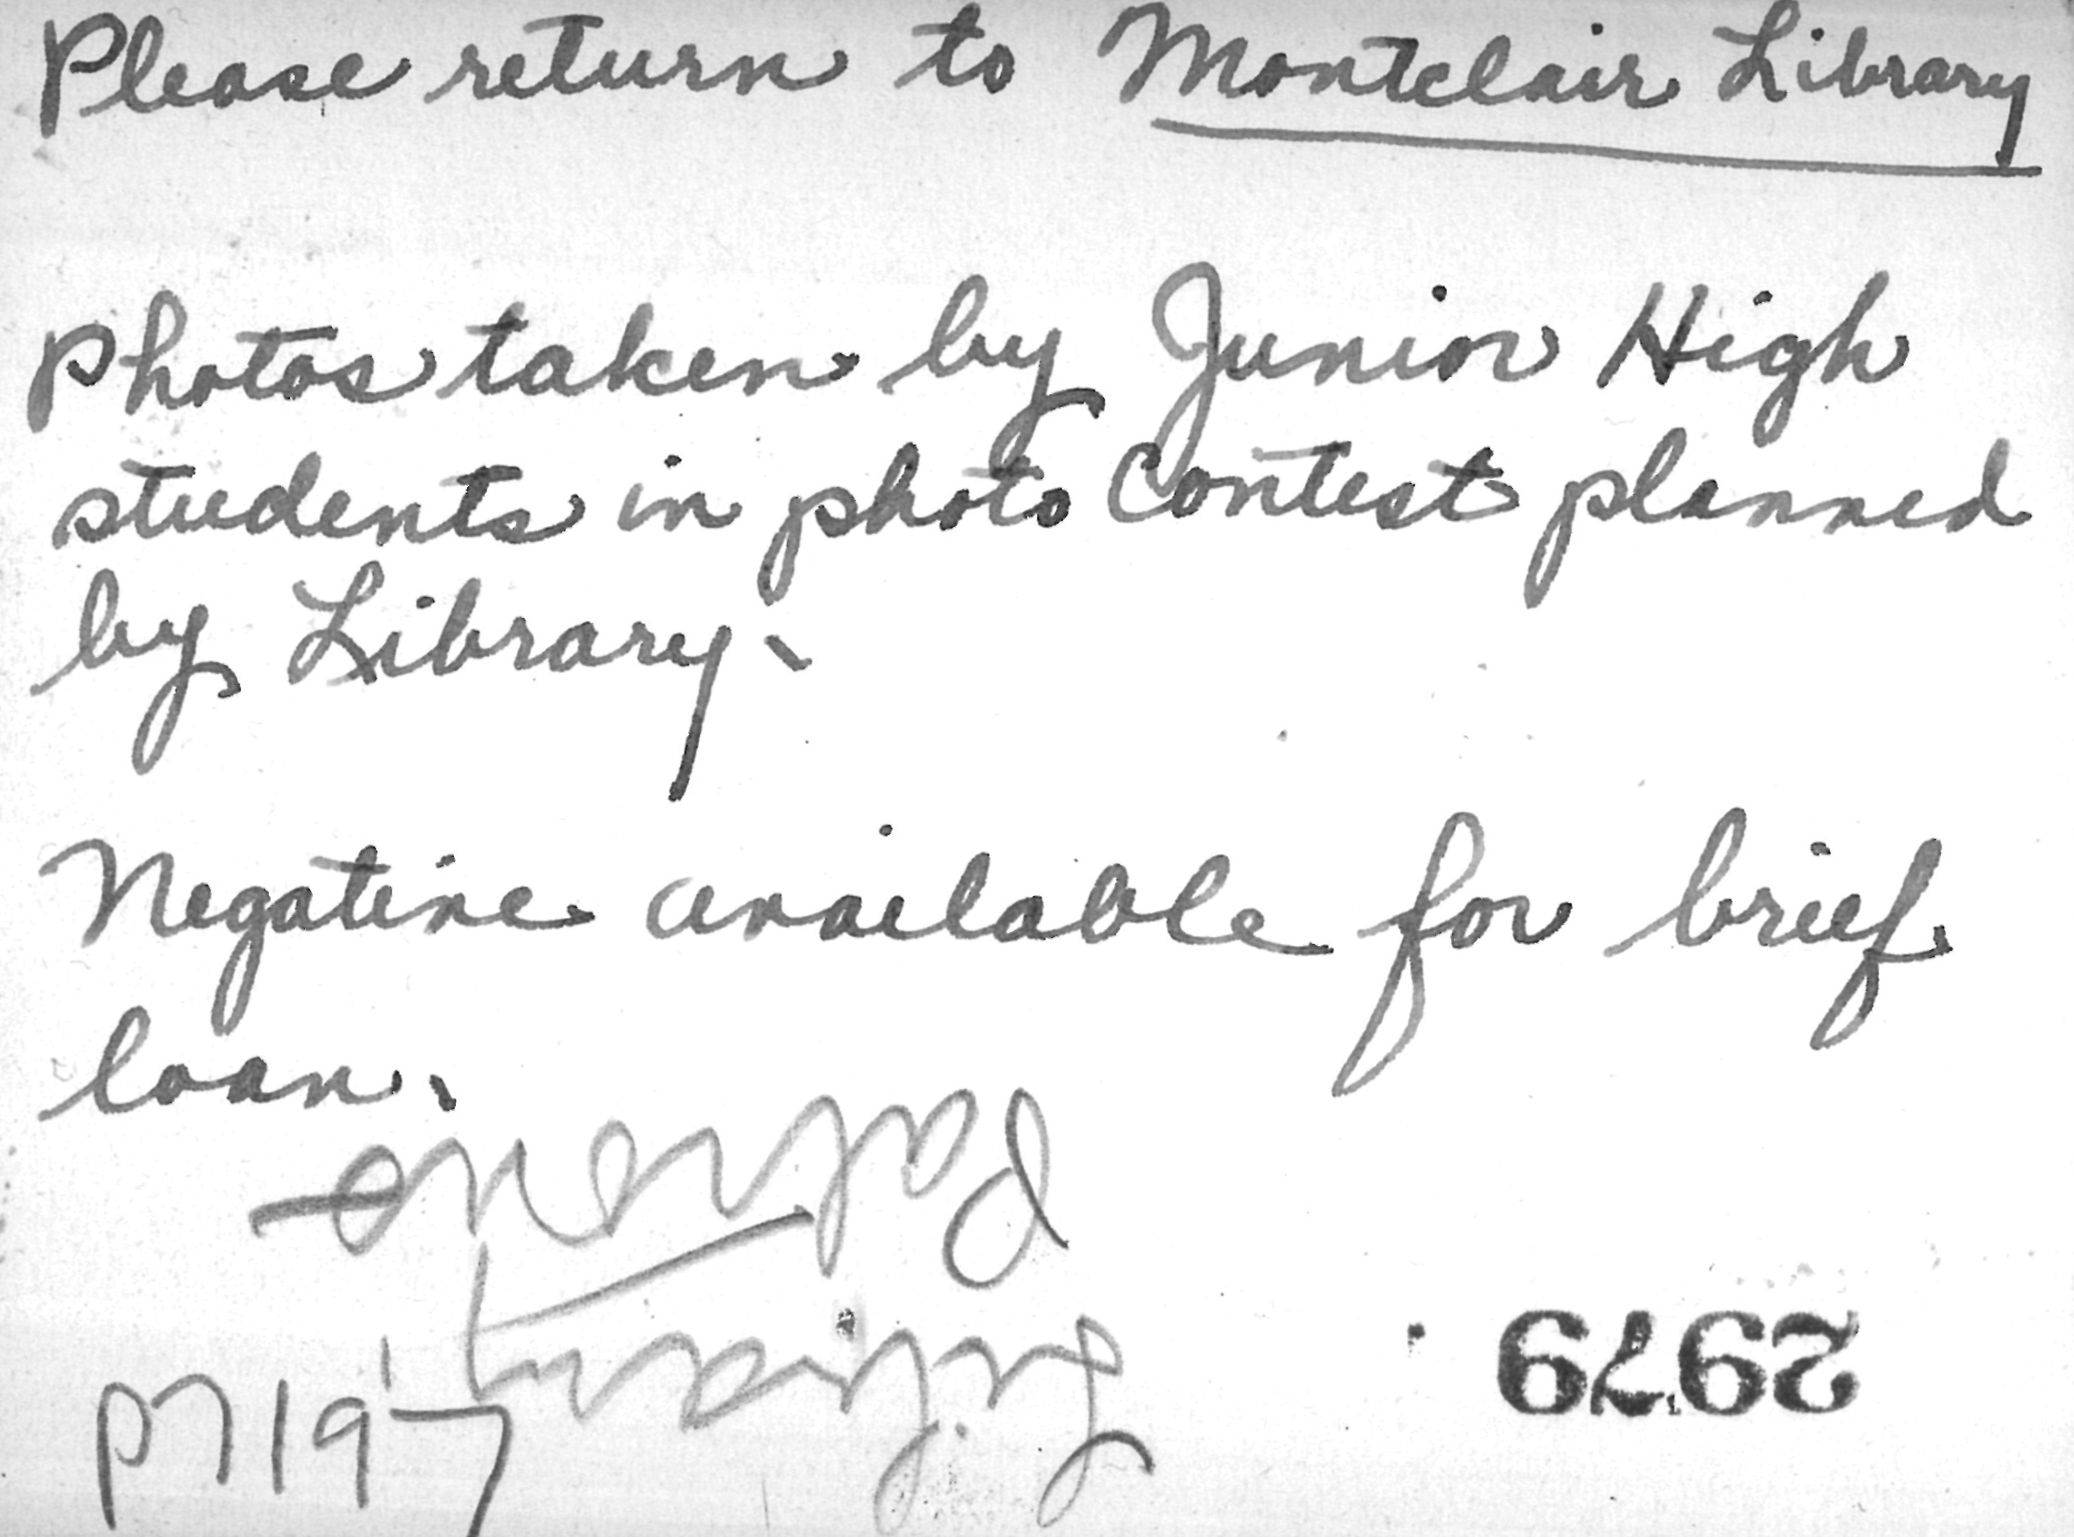 Please return to Montclair Library
Photos taken by Junior High
students in photo contest planned
by Library.
Negative available for brief
loan.
Library
Patrons
2979